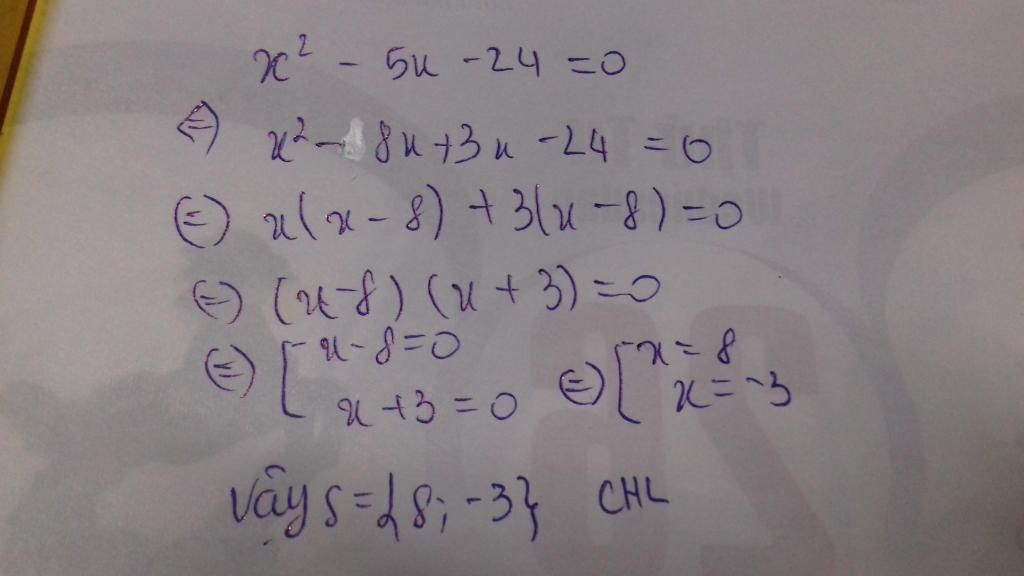 x² - 5x - 24 = 0
⇔ x² - 8x + 3x - 24 = 0
⇔ x(x - 8) + 3(x - 8) = 0
⇔ (x - 8) (x + 3) = 0
⇔ [ x - 8 = 0 ⇔ [ x = 8
x + 3 = 0 x = -3
Vậy S = {8; -3} CHL